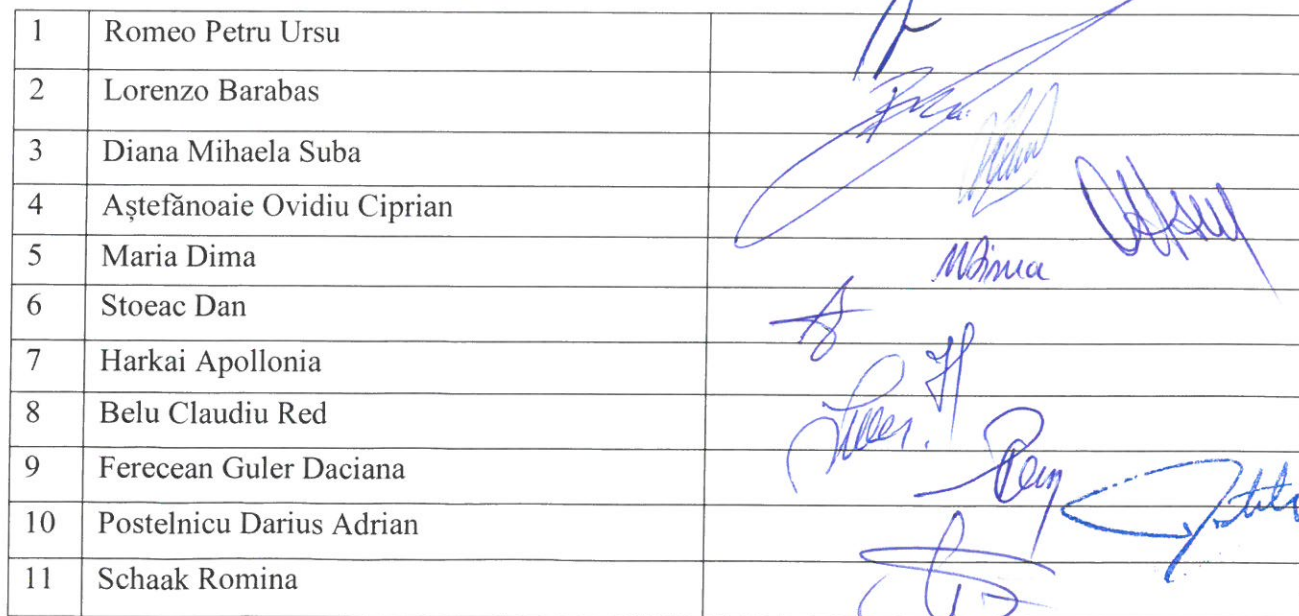 1 Romeo Petru Ursu
2 Lorenzo Barabas
3 Diana Mihaela Suba
4 Aștefănoaie Ovidiu Ciprian
5 Maria Dima
MDima
6 Stoeac Dan
7 Harkai Apollonia
8 Belu Claudiu Red
9 Ferecean Guler Daciana
10 Postelnicu Darius Adrian
11 Schaak Romina